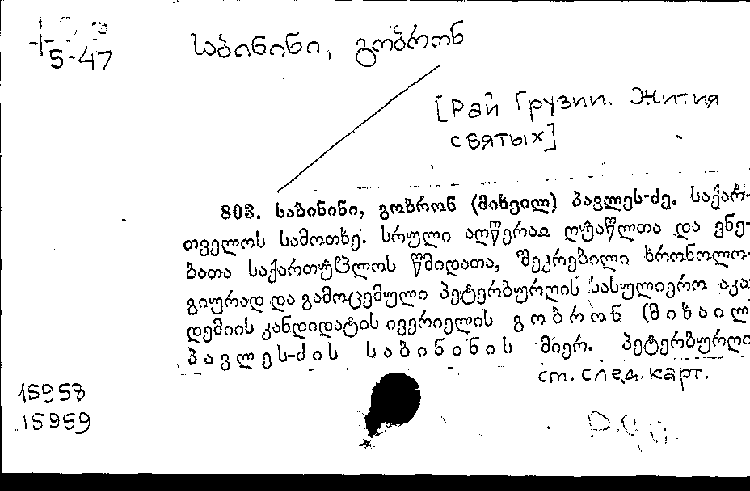 5-47
საბინინი, გობრონ
[Рай Грузии. Жития
святых]
803. საბინინი, გობრონ (მიხეილ) პავლეს-ძე. საქარ-
თველოს სამოთხე. სრული აღწერაჲ ღუაწლთა და ვნე-
ბათა საქართუჱლოს წმიდათა, შეკრებილი ხრონოლო-
გიურად და გამოცემული პეტერბურღის სასულიერო აკა
დემიის კანდიდატის ივერიელის გობრონ (მიხაილ
პავლეს-ძის საბინინის მიერ. პეტერბურღი
см. след. карт.
15958
15959